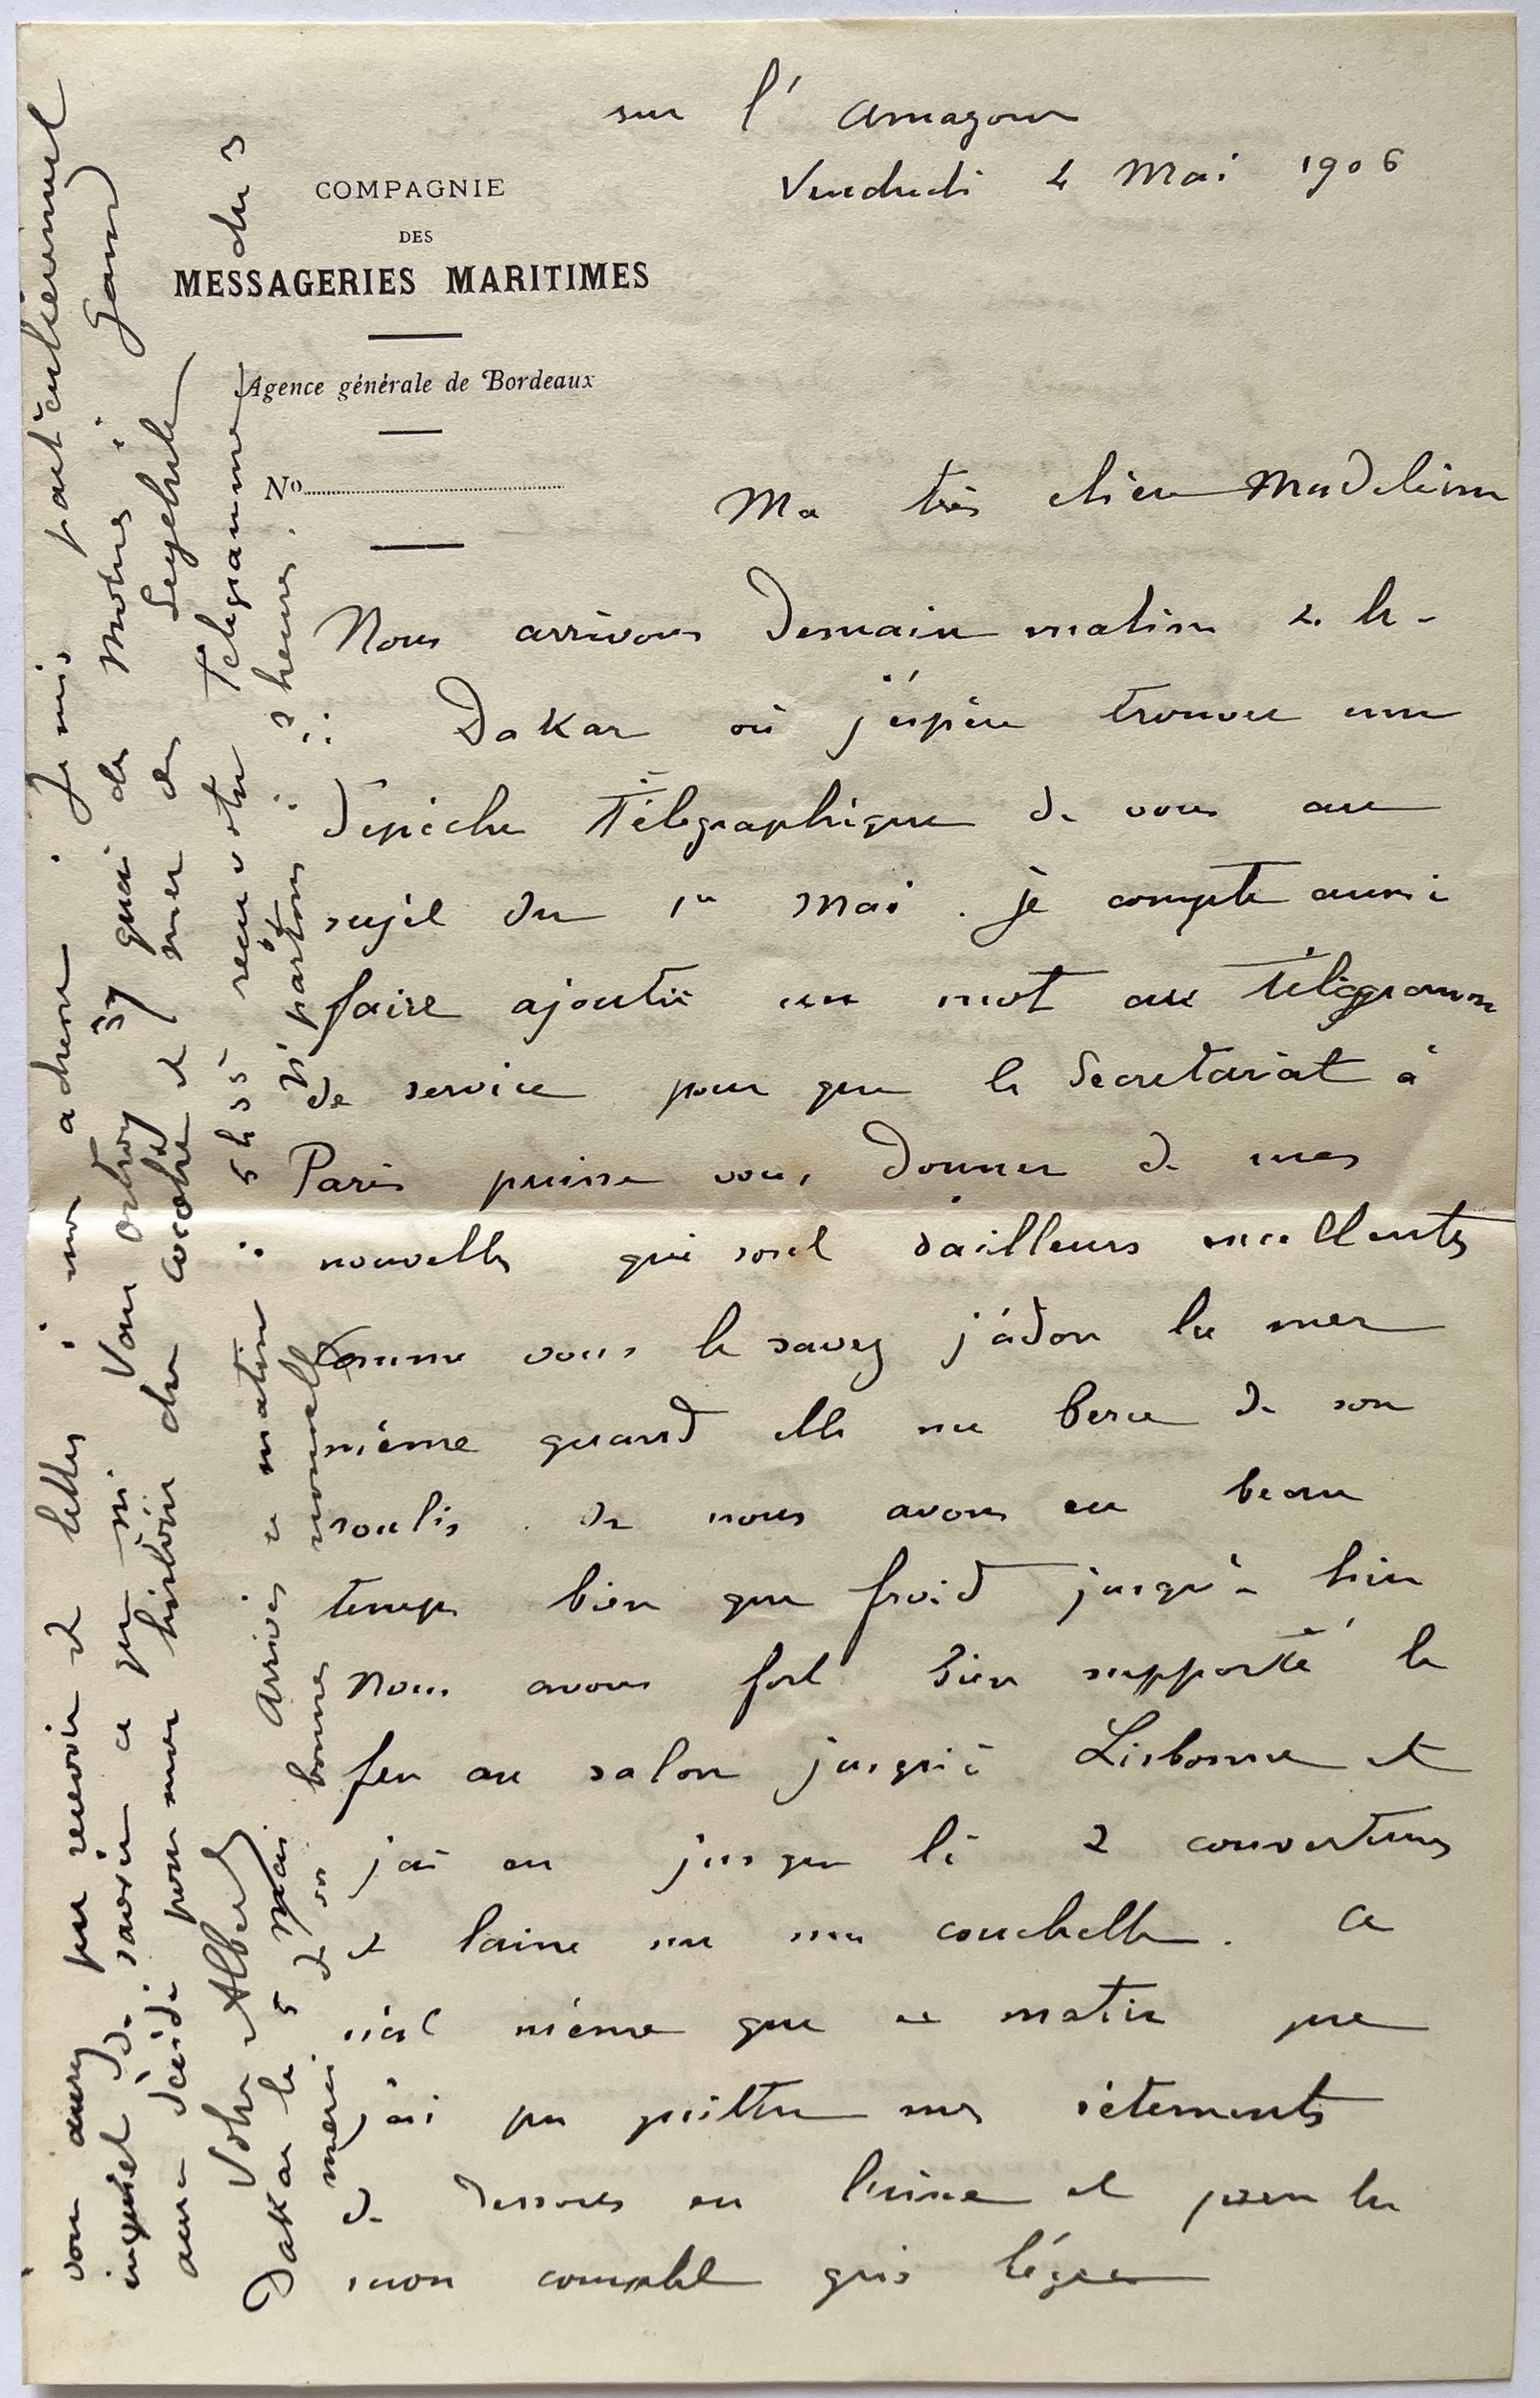 sur l'amazone
Vendredi 4 Mai 1906
COMPAGNIE
DES
MESSAGERIES MARITIMES
Agence générale de Bordeaux
No
Ma très chère Madeleine
Nous arrivons demain matin 2 h
à Dakar où j'espère trouver une
dépêche Télégraphique de vous au
sujet du 1er Mai. je compte aussi
faire ajouter un mot au Télégramme
de service pour que le Secretariat à
Paris puisse vous donner de mes
nouvelles qui sont d'ailleurs excellentes
Comme vous le savez j'adore la mer
même quand elle me berce de son
roulis. nous avons eu beau
temps bien que froid jusqu'à hier
Nous avons fort bien supporté le
feu au salon jusqu'à Lisbonne et
j'ai eu jusque là 2 couvertures
de laine sur ma couchette. Ce
n'est même que ce matin que
j'ai pu quitter mes vêtements
de dessous en laine et prendre
mon complet gris léger
vous aurez pu recevoir de lettres à mon adresse. Je suis particulièrement
inquiet de savoir ce que Van Ortroy Sy quai de Moines à Gand
aura décidé pour mon histoire du cocotier et mer des
Votre Albert
Dakar le 5 Mai Arrivés ce matin à 5 h 55 reçu votre Télégramme du 3
merci de vos bonnes nouvelles N partons à 3 heures.